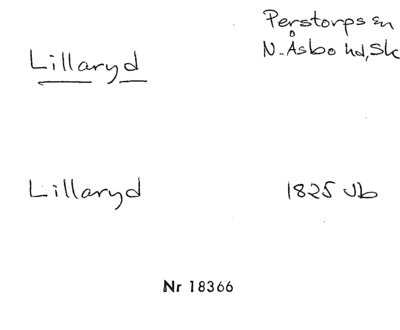 Perstorps sn
Lillaryd
N. Åsbo hd, Sk
Lillaryd
1825 Jb
Nr 18366